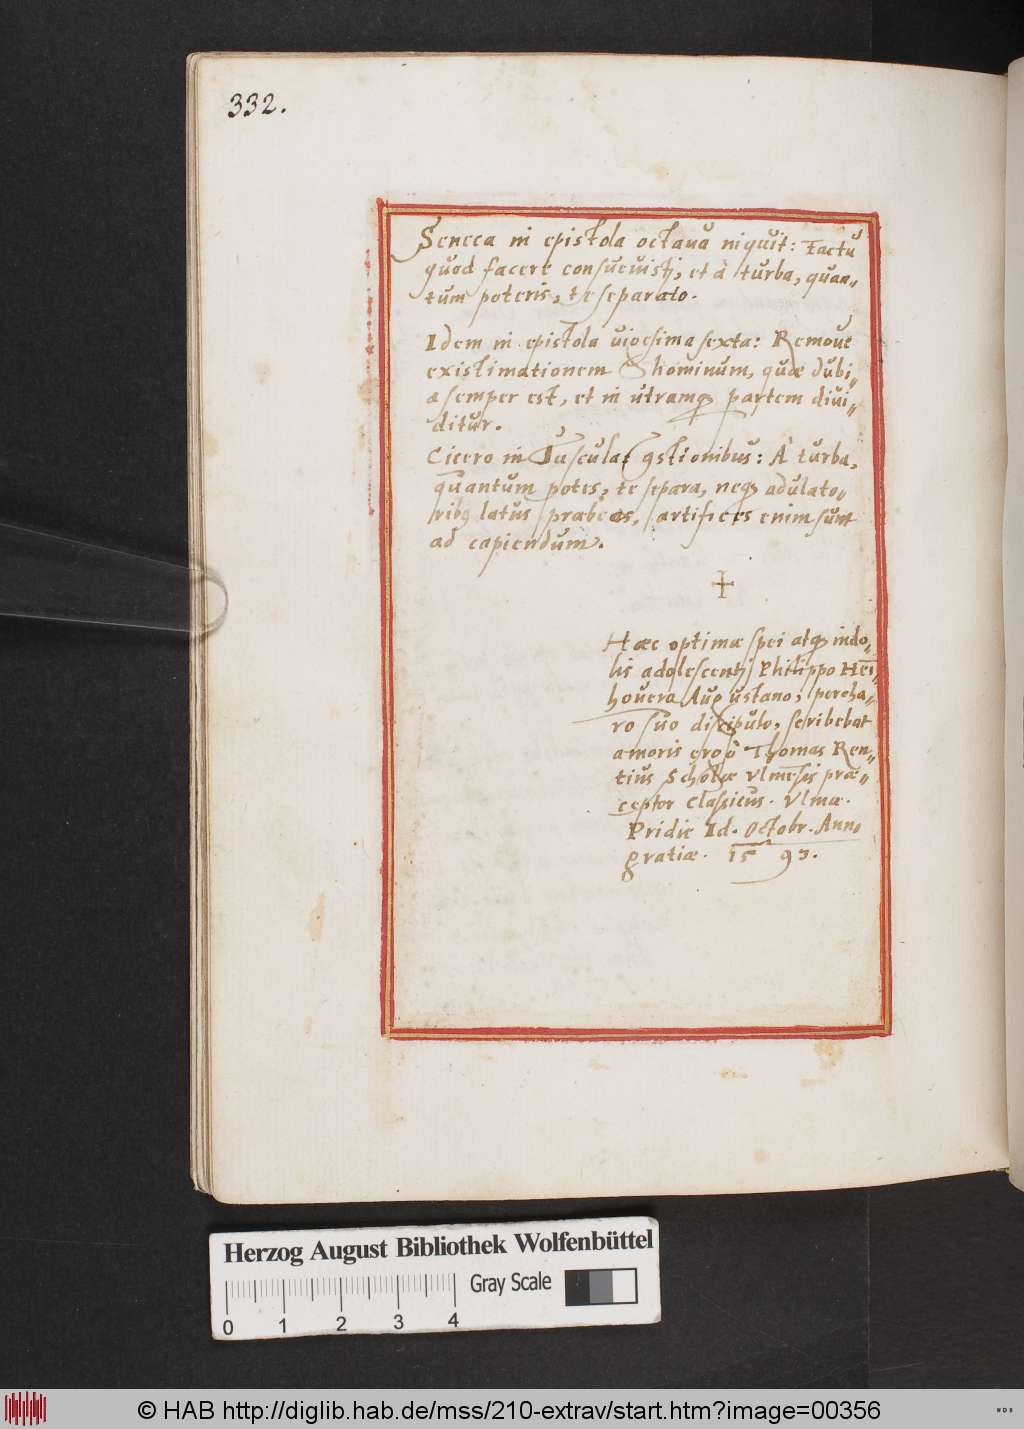 332.
Seneca in epistola octaua inquit: Fac tu
quod facere consuevisti, et à turba, quan„
tum poteris, te separato.
Idem in epistola vigesima sexta: Remove
existimationem hominum, quae dubi„
a semper est, et in utramq partem divi„
ditur.
Cicero in Tuscula: qstionibus: A turba,
quantum potes, te separa, neq adulato„
ribq latus praebeas, artifices enim sunt
ad capiendum.
+
Haec optimae spei atq indo„
lis adolescenti Philippo Hein„
hovero Augustano, percha„
ro suo discipulo, scribebat
amoris ergo Thomas Ren„
tius Scholae Vlmēsis prae„
ceptor Classicus. Vlmae.
Pridie Id. Octobr. Anno
gratiae. 15 93.
Herzog August Bibliothek Wolfenbüttel
Gray Scale
0 1 2 3 4
© HAB http://diglib.hab.de/mss/210-extrav/start.htm?image=00356